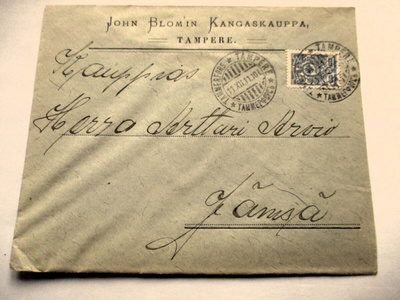 JOHN BLOM'IN KANGASKAUPPA,
TAMPERE.
Kauppias
Herra Artturi Arvio
Jämsä
TAMPERE
TAMPERE